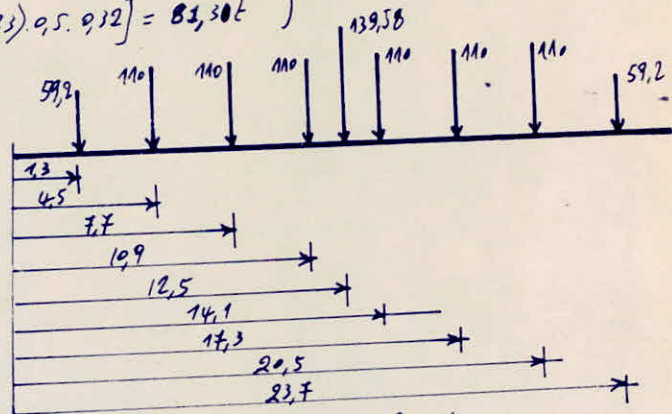 23).0,5.0,32] = 81,30t )
139,58
59,2 110 110 110 110 110 110 59,2
1,3
4,5
7,7
10,9
12,5
14,1
17,3
20,5
23,7